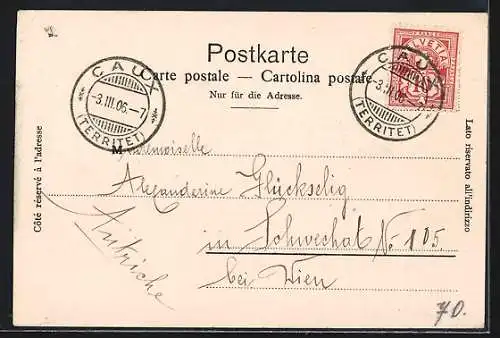 Postkarte
Carte postale — Cartolina postale
Nur für die Adresse.
CAUX
-3.III.06.-7
(TERRITET)
HELVETIA
10
CAUX
-3.III.06.-7
(TERRITET)
Côté réservé à l'adresse
Lato riservato all'indirizzo
Mademoiselle
Alexanderine Glückselig
in Schwechat No 105
bei Wien
Autriche
70.